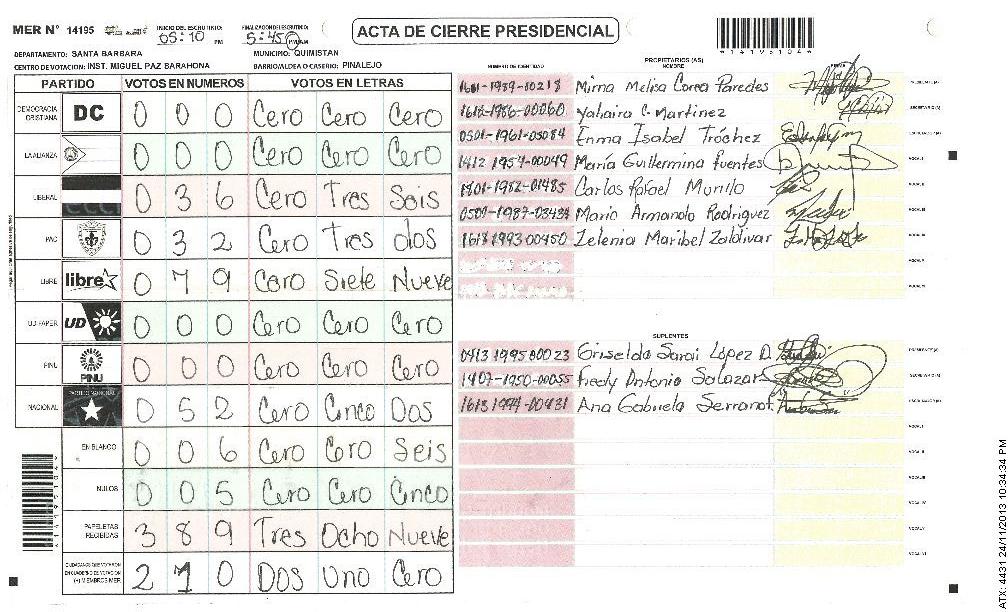 MER Nº 14195 INICIO DEL ESCRUTINIO: 05:10 PM FINALIZACION DE ESCRUTINIO: 5:45 PM/AM
ACTA DE CIERRE PRESIDENCIAL
*14195104*
DEPARTAMENTO: SANTA BARBARA MUNICIPIO: QUIMISTAN
CENTRO DE VOTACION: INST. MIGUEL PAZ BARAHONA BARRIO/ALDEA O CASERIO: PINALEJO
PARTIDO VOTOS EN NUMEROS VOTOS EN LETRAS
DEMOCRACIA CRISTIANA DC 0 0 0 Cero Cero Cero
LA ALIANZA 0 0 0 Cero Cero Cero
LIBERAL 0 3 6 Cero Tres Seis
PAC 0 3 2 Cero Tres dos
LIBRE libre 0 7 9 Cero Siete Nueve
UD-FAPER UD 0 0 0 Cero Cero Cero
PINU PINU 0 0 0 Cero Cero Cero
NACIONAL 0 5 2 Cero Cinco Dos
EN BLANCO 0 0 6 Cero Cero Seis
NULOS 0 0 5 Cero Cero Cinco
PAPELETAS RECIBIDAS 3 8 9 Tres Ocho Nueve
CIUDADANOS QUE VOTARON EN CUADERNO DE VOTACION (+) MIEMBROS MER 2 1 0 Dos Uno Cero
PROPIETARIOS (AS)
NUMERO DE IDENTIDAD NOMBRE FIRMA
Mirna Melisa Corea Paredes PRESIDENTE (A)
1618-1986-00060 Yahaira C. Martinez SECRETARIO (A)
0501-1961-05084 Enma Isabel Tróchez ESCRUTADOR (A)
1412 1957-00049 María Guillermina Fuentes VOCAL I
Carlos Rafael Murillo VOCAL II
Mario Armando Rodriguez VOCAL III
1618 1993 00450 Zelenia Maribel Zaldivar VOCAL IV
VOCAL V
VOCAL VI
SUPLENTES
0413 1995 00023 Griselda Sarai López D. PRESIDENTE (A)
1407-1950-00055 Fredy Antonio Salazar SECRETARIO (A)
Ana Gabriela Serrano ESCRUTADOR (A)
VOCAL I
VOCAL II
VOCAL III
VOCAL IV
VOCAL V
VOCAL VI
ATX: 4431 24/11/2013 10:34:34 PM